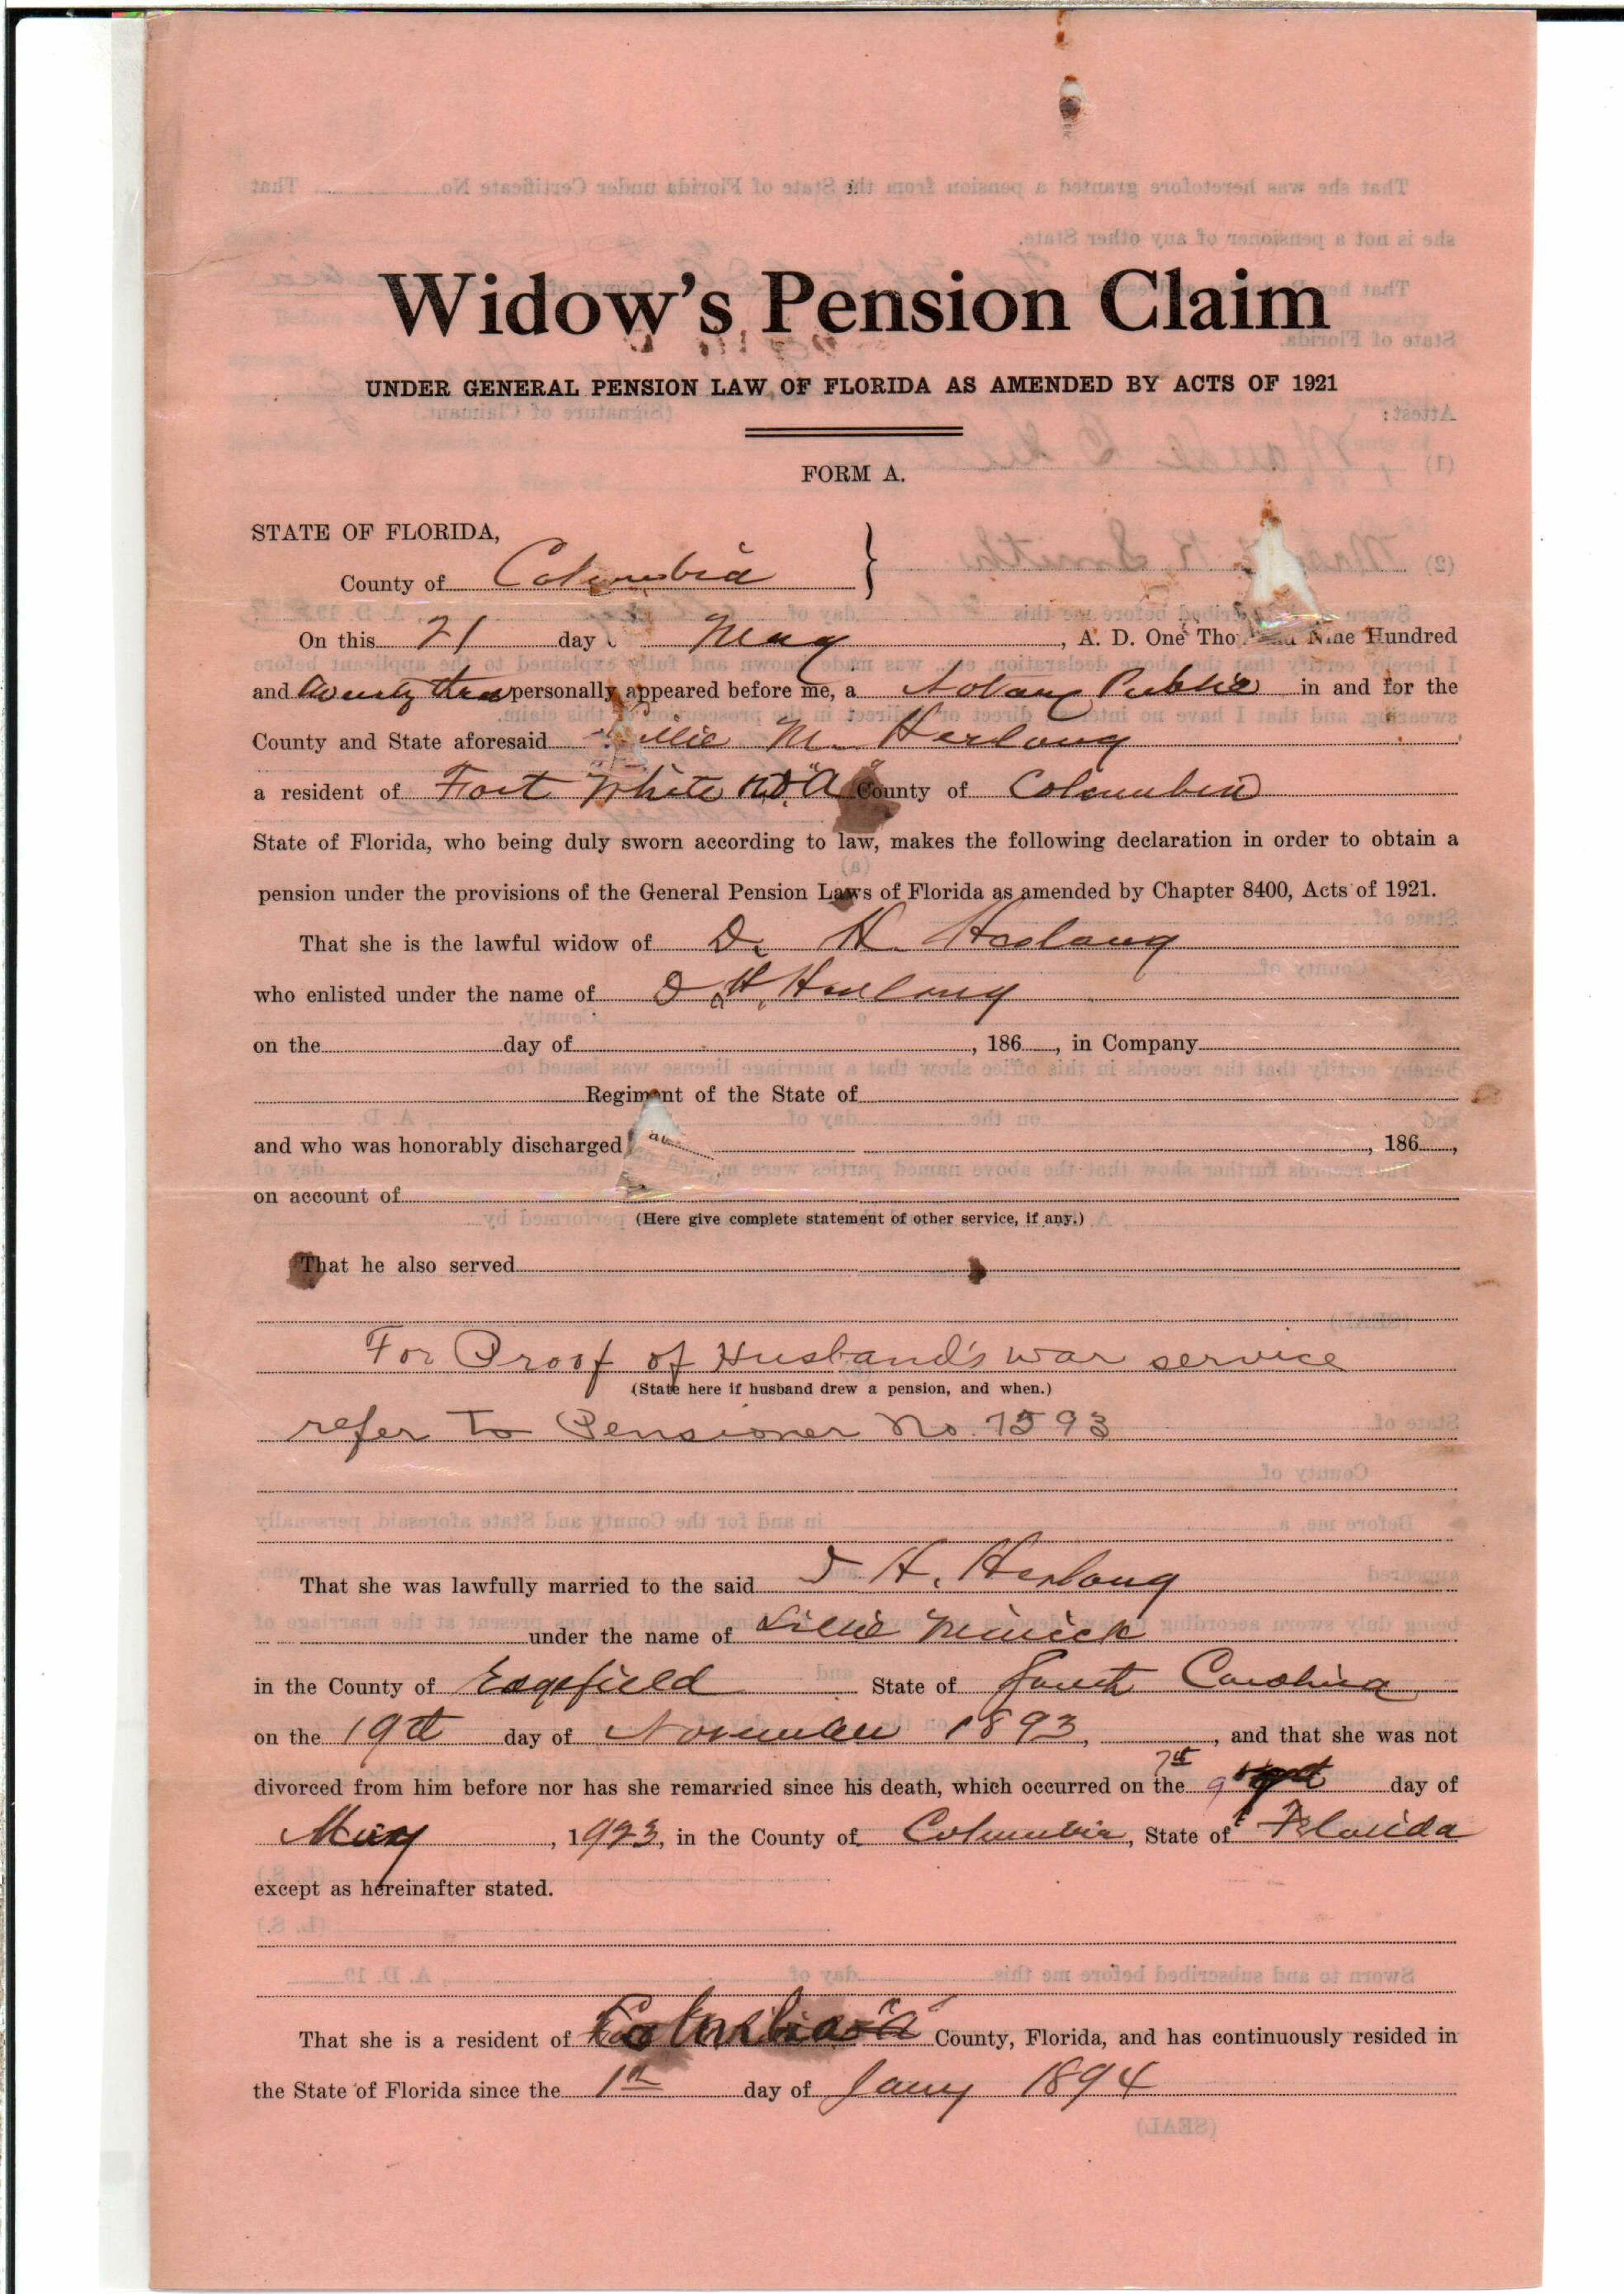 Widow's Pension Claim
UNDER GENERAL PENSION LAW OF FLORIDA AS AMENDED BY ACTS OF 1921
FORM A.
STATE OF FLORIDA,
County of Columbia
On this 21 day May, A. D. One Nine Hundred
and twenty three personally appeared before me, a Notary Public in and for the
County and State aforesaid Lillie M. Herlong
a resident of Fort White County of Columbia
State of Florida, who being duly sworn according to law, makes the following declaration in order to obtain a
pension under the provisions of the General Pension Laws of Florida as amended by Chapter 8400, Acts of 1921.
That she is the lawful widow of D. H. Herlong
who enlisted under the name of D. H. Herlong
on the day of , 186 , in Company
Regiment of the State of
and who was honorably discharged , 186 ,
on account of
(Here give complete statement of other service, if any.)
That he also served
For Proof of Husband's war service
(State here if husband drew a pension, and when.)
refer to Pensioner No. 7593
That she was lawfully married to the said D H. Herlong
under the name of Lillie Minick
in the County of Edgefield State of South Carolina
on the 19th day of November 1893, , and that she was not
divorced from him before nor has she remarried since his death, which occurred on the 7th day of
May , 1923, in the County of Columbia, State of Florida
except as hereinafter stated.
That she is a resident of Columbia County, Florida, and has continuously resided in
the State of Florida since the 1st day of Jany 1894